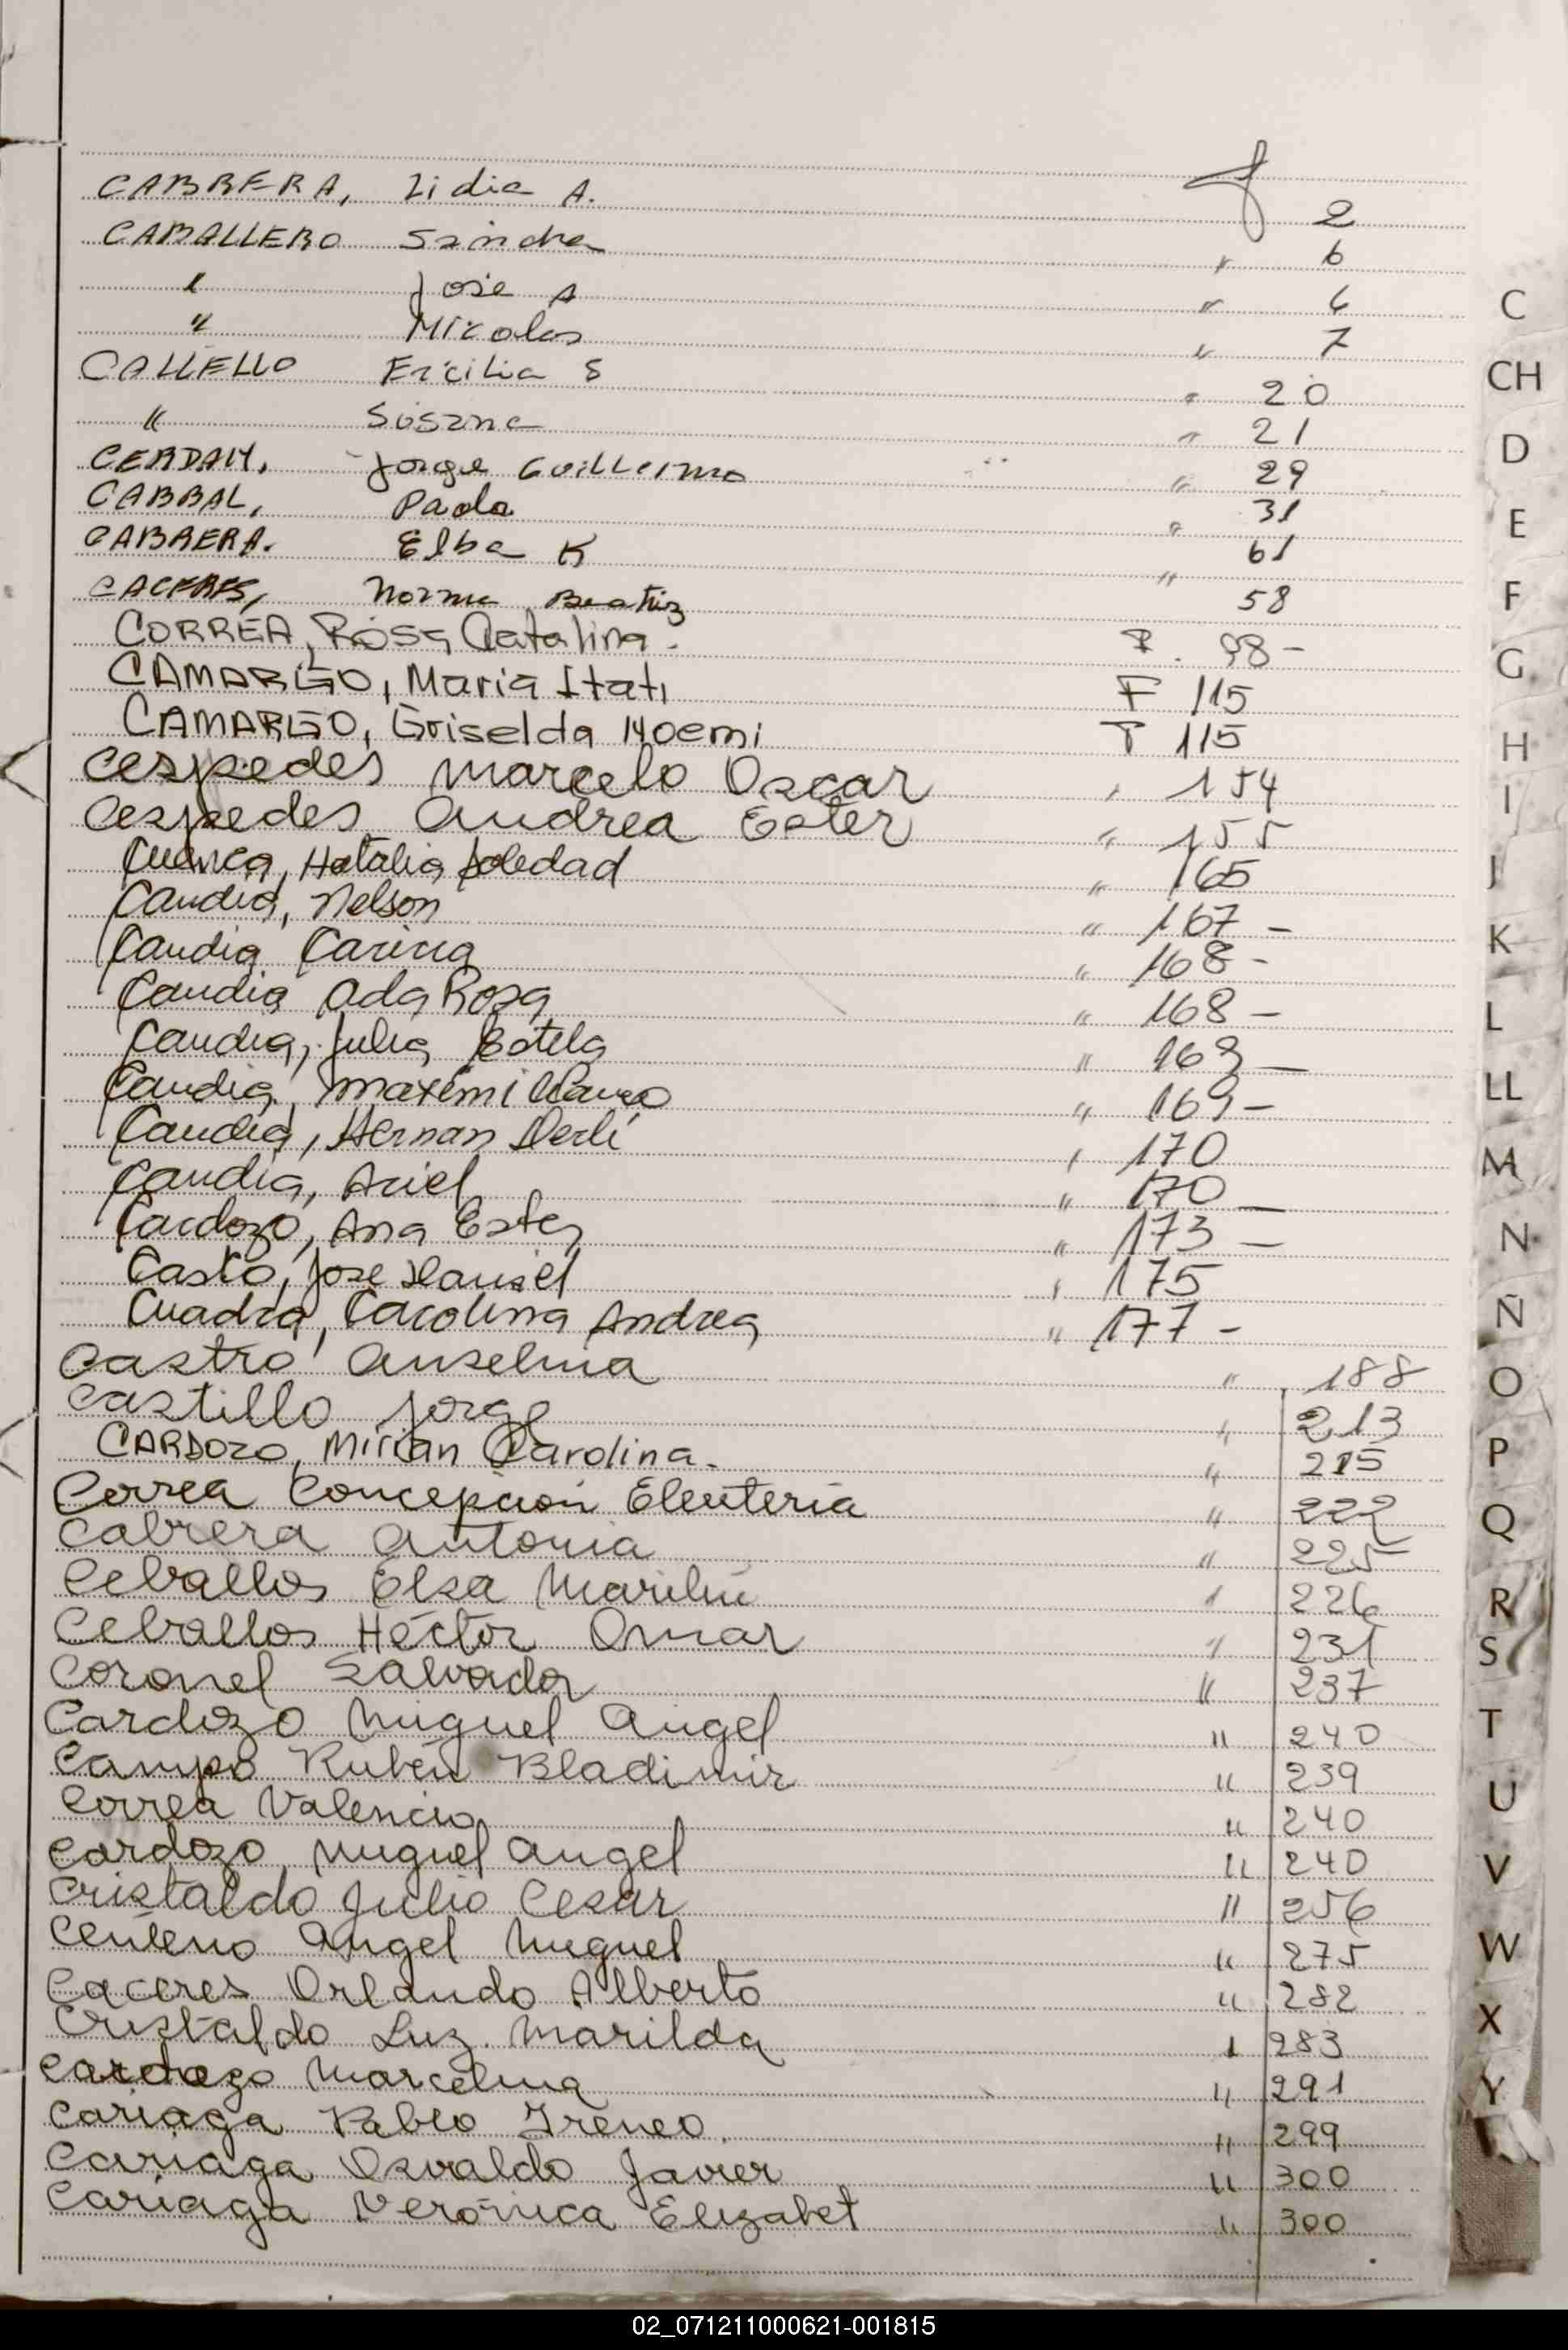 CABRERA, Lidia A. f 2
CABALLERO Sandra " 6
" José A " 6
" Nicolas " 7
CALLELLO Ercilia S " 20
" Susana " 21
CERDAN, Jorge Guillermo " 29
CABRAL, Paola " 31
CABRERA. Elba K " 61
CACERES, Norma Beatriz " 58
CORREA, Rosa Catalina. F. 98-
CAMARGO, Maria Itati F 115
CAMARGO, Griselda Noemi F 115
Cespedes Marcelo Oscar " 154
Cespedes Andrea Ester " 155
Cuenca, Natalia Soledad " 165
Candia, Nelson " 167 -
Candia Carina " 168 -
Candia Ada Rosa " 168 -
Candia, Julia Estela " 169 -
Candia, Maximiliano " 169 -
Candia, Hernan Derli " 170
Candia, Ariel " 170 -
Cardozo, Ana Ester " 173 -
Castro, Jose Daniel " 175
Cuadra, Carolina Andrea " 177 -
Castro Anselma " 188
Castillo Jorge " 213
CARDOZO, Mirian Carolina. " 215
Correa Concepcion Eleuteria " 222
Cabrera Antonia " 225
Ceballos Elsa Marilú " 226
Ceballos Héctor Omar " 231
Coronel Salvador " 237
Cardozo Miguel Angel " 240
Campo Rubén Bladimir " 239
Correa Valencio " 240
Cardozo, Miguel Angel " 240
Cristaldo Julio Cesar " 256
Centeno Angel Miguel " 275
Caceres Orlando Alberto " 282
Cristaldo Luz Marilda " 283
Cardozo Marcelina " 291
Cariaga Pablo Ireneo. " 299
Cariaga Osvaldo Javier " 300
Cariaga Verónica Elizabet " 300
C
CH
D
E
F
G
H
I
J
K
L
LL
M
N
Ñ
O
P
Q
R
S
T
U
V
W
X
Y
02_071211000621-001815